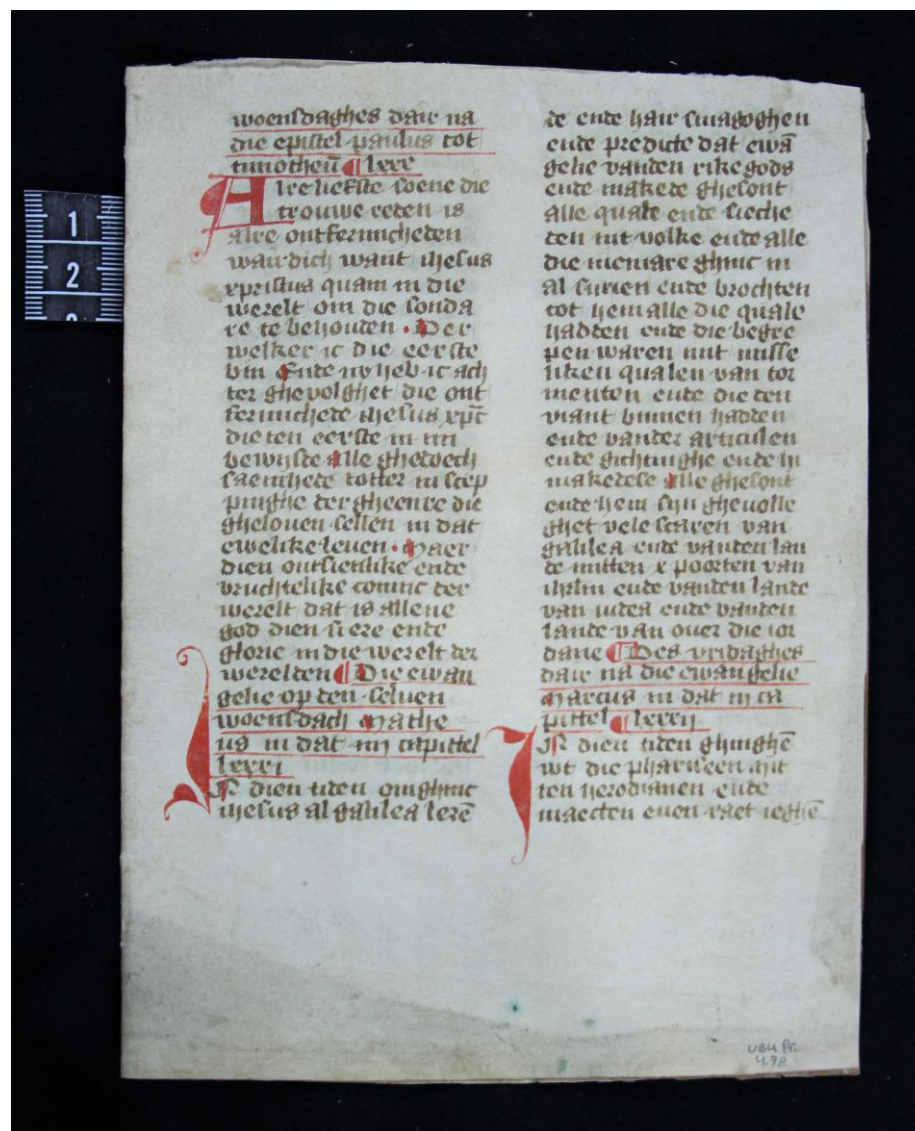 woensdaghes dair na
die epistel paulus tot
timotheū ¶ lxxx
Alre liefste soene die
trouwe reden is
alre ontfermicheden
wairdich want ihesus
xpristus quam in die
werelt om die sonda
re te behouden · Der
welker ic die eerste
bin Ende ny heb ic ach
ter ghevolghet die ont
fermichede ihesus xpc̄
die ten eerste in mi
bewijste alle ghedoech
saemhede totter in scep
pinghe der gheenre die
gheloven sellen in dat
ewelike leven · Maer
dien onsienlike ende
vruchtelike coninc der
werelt dat is allene
god dien si ere ende
glorie in die werelt der
werelden ¶ Die ewan
gelie op den selven
woensdach Mathe
us in dat iiij capittel
lxxxi
IN dien tiden omghinc
ihesus al galilea lerē
de ende hair sinagoghen
ende predicte dat ewā
gelie vanden rike gods
ende makede ghesont
alle quale ende sieche
den mit volke ende alle
die niemare ghinc in
al surien ende brochten
tot hem alle die quale
hadden ende die begre
pen waren mit misse
liken qualen van tor
menten ende die den
viant binnen hadden
ende vander articulen
ende gichtinghe ende hi
makedese alle ghesont
ende hem sijn ghevolle
ghet vele scaren van
galilea ende vanden lan
de mitten x poorten van
ihrlm ende vanden lande
van iudea ende vanden
lande van over die ior
dane ¶ Des vridaghes
dair na die ewangelie
Marcus in dat iij ca
pittel ¶ lxxxij
IN dien tiden ghinghē
wt die phariseen mit
ten herodianen ende
maecten enen raet ieghē
UBU Fr.
4.78
1
2